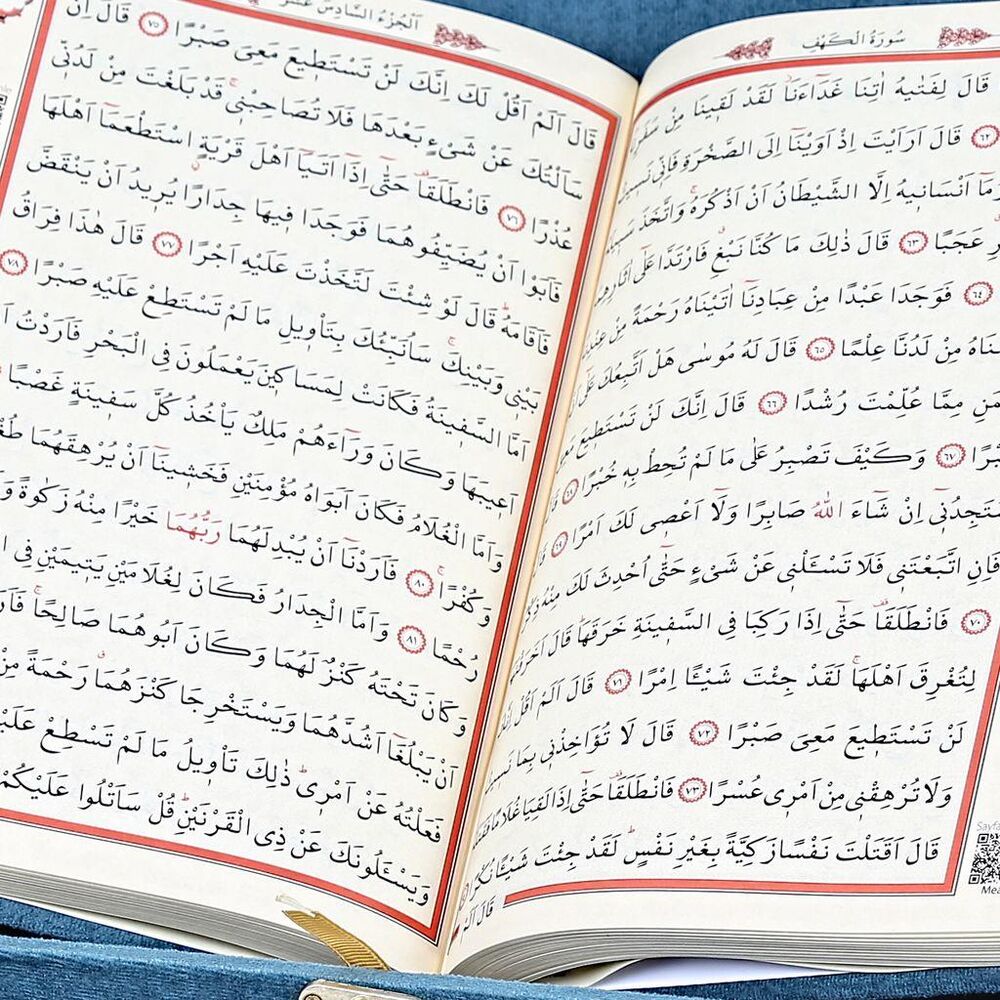 سُورَةُ الْكَهْفِ
قَالَ لِفَتٰيهُ اٰتِنَا غَدَٓاءَنَاۘ لَقَدْ لَقٖينَا مِنْ سَفَرِنَا
﴿٦٢﴾ قَالَ اَرَاَيْتَ اِذْ اَوَيْنَٓا اِلَى الصَّخْرَةِ فَاِنّٖي نَسٖيتُ
وَمَٓا اَنْسَانٖيهُ اِلَّا الشَّيْطَانُ اَنْ اَذْكُرَهُۚ وَاتَّخَذَ سَبٖيلَهُ
عَجَبًا ﴿٦٣﴾ قَالَ ذٰلِكَ مَا كُنَّا نَبْغِۗ فَارْتَدَّا عَلٰٓى اٰثَارِهِمَا
﴿٦٤﴾ فَوَجَدَا عَبْدًا مِنْ عِبَادِنَٓا اٰتَيْنَاهُ رَحْمَةً مِنْ عِنْدِنَا
مِنْ لَدُنَّا عِلْمًا ﴿٦٥﴾ قَالَ لَهُ مُوسٰى هَلْ اَتَّبِعُكَ عَلٰٓى اَنْ
مِمَّا عُلِّمْتَ رُشْدًا ﴿٦٦﴾ قَالَ اِنَّكَ لَنْ تَسْتَطٖيعَ مَعِيَ
﴿٦٧﴾ وَكَيْفَ تَصْبِرُ عَلٰى مَا لَمْ تُحِطْ بِهٖ خُبْرًا ﴿٦٨﴾
سَتَجِدُنٖٓي اِنْ شَٓاءَ اللّٰهُ صَابِرًا وَلَٓا اَعْصٖي لَكَ اَمْرًا ﴿٦٩﴾ قَالَ
فَاِنِ اتَّبَعْتَنٖي فَلَا تَسْـَٔلْنٖي عَنْ شَيْءٍ حَتّٰٓى اُحْدِثَ لَكَ مِنْهُ ذِكْرًا
﴿٧٠﴾ فَانْطَلَقَا۠ حَتّٰٓى اِذَا رَكِبَا فِي السَّفٖينَةِ خَرَقَهَاۜ قَالَ اَخَرَقْتَهَا
لِتُغْرِقَ اَهْلَهَاۚ لَقَدْ جِئْتَ شَيْـًٔا اِمْرًا ﴿٧١﴾ قَالَ اَلَمْ اَقُلْ اِنَّكَ
لَنْ تَسْتَطٖيعَ مَعِيَ صَبْرًا ﴿٧٢﴾ قَالَ لَا تُؤَاخِذْنٖي بِمَا نَسٖيتُ
وَلَا تُرْهِقْنٖي مِنْ اَمْرٖي عُسْرًا ﴿٧٣﴾ فَانْطَلَقَا۠ حَتّٰٓى اِذَا لَقِيَا غُلَامًا فَقَتَلَهُۙ
قَالَ اَقَتَلْتَ نَفْسًا زَكِيَّةً بِغَيْرِ نَفْسٍۜ لَقَدْ جِئْتَ شَيْـًٔا نُكْرًا
قَالَ اَلَمْ
اَلْجُزْءُ السَّادِسَ عَشَرَ
قَالَ اَلَمْ اَقُلْ لَكَ اِنَّكَ لَنْ تَسْتَطٖيعَ مَعِيَ صَبْرًا ﴿٧٥﴾ قَالَ اِنْ
سَاَلْتُكَ عَنْ شَيْءٍ بَعْدَهَا فَلَا تُصَاحِبْنٖيۚ قَدْ بَلَغْتَ مِنْ لَدُنّٖي
عُذْرًا ﴿٧٦﴾ فَانْطَلَقَا۠ حَتّٰٓى اِذَٓا اَتَيَٓا اَهْلَ قَرْيَةٍۨ اسْتَطْعَمَٓا اَهْلَهَا
فَاَبَوْا اَنْ يُضَيِّفُوهُمَا فَوَجَدَا فٖيهَا جِدَارًا يُرٖيدُ اَنْ يَنْقَضَّ
فَاَقَامَهُۜ قَالَ لَوْ شِئْتَ لَتَّخَذْتَ عَلَيْهِ اَجْرًا ﴿٧٧﴾ قَالَ هٰذَا فِرَاقُ
بَيْنٖي وَبَيْنِكَۚ سَاُنَبِّئُكَ بِتَأْوٖيلِ مَا لَمْ تَسْتَطِعْ عَلَيْهِ صَبْرًا ﴿٧٨﴾
اَمَّا السَّفٖينَةُ فَكَانَتْ لِمَسَاكٖينَ يَعْمَلُونَ فِي الْبَحْرِ فَاَرَدْتُ
اَعٖيبَهَا وَكَانَ وَرَٓاءَهُمْ مَلِكٌ يَأْخُذُ كُلَّ سَفٖينَةٍ غَصْبًا
وَاَمَّا الْغُلَامُ فَكَانَ اَبَوَاهُ مُؤْمِنَيْنِ فَخَشٖينَٓا اَنْ يُرْهِقَهُمَا
وَكُفْرًاۚ ﴿٨٠﴾ فَاَرَدْنَٓا اَنْ يُبْدِلَهُمَا رَبُّهُمَا خَيْرًا مِنْهُ زَكٰوةً
رُحْمًا ﴿٨١﴾ وَاَمَّا الْجِدَارُ فَكَانَ لِغُلَامَيْنِ يَتٖيمَيْنِ فِي
وَكَانَ تَحْتَهُ كَنْزٌ لَهُمَا وَكَانَ اَبُوهُمَا صَالِحًاۚ
اَنْ يَبْلُغَٓا اَشُدَّهُمَا وَيَسْتَخْرِجَا كَنْزَهُمَاۗ رَحْمَةً مِنْ
فَعَلْتُهُ عَنْ اَمْرٖيۜ ذٰلِكَ تَأْوٖيلُ مَا لَمْ تَسْطِعْ
وَيَسْـَٔلُونَكَ عَنْ ذِي الْقَرْنَيْنِۜ قُلْ سَاَتْلُوا عَلَيْكُمْ